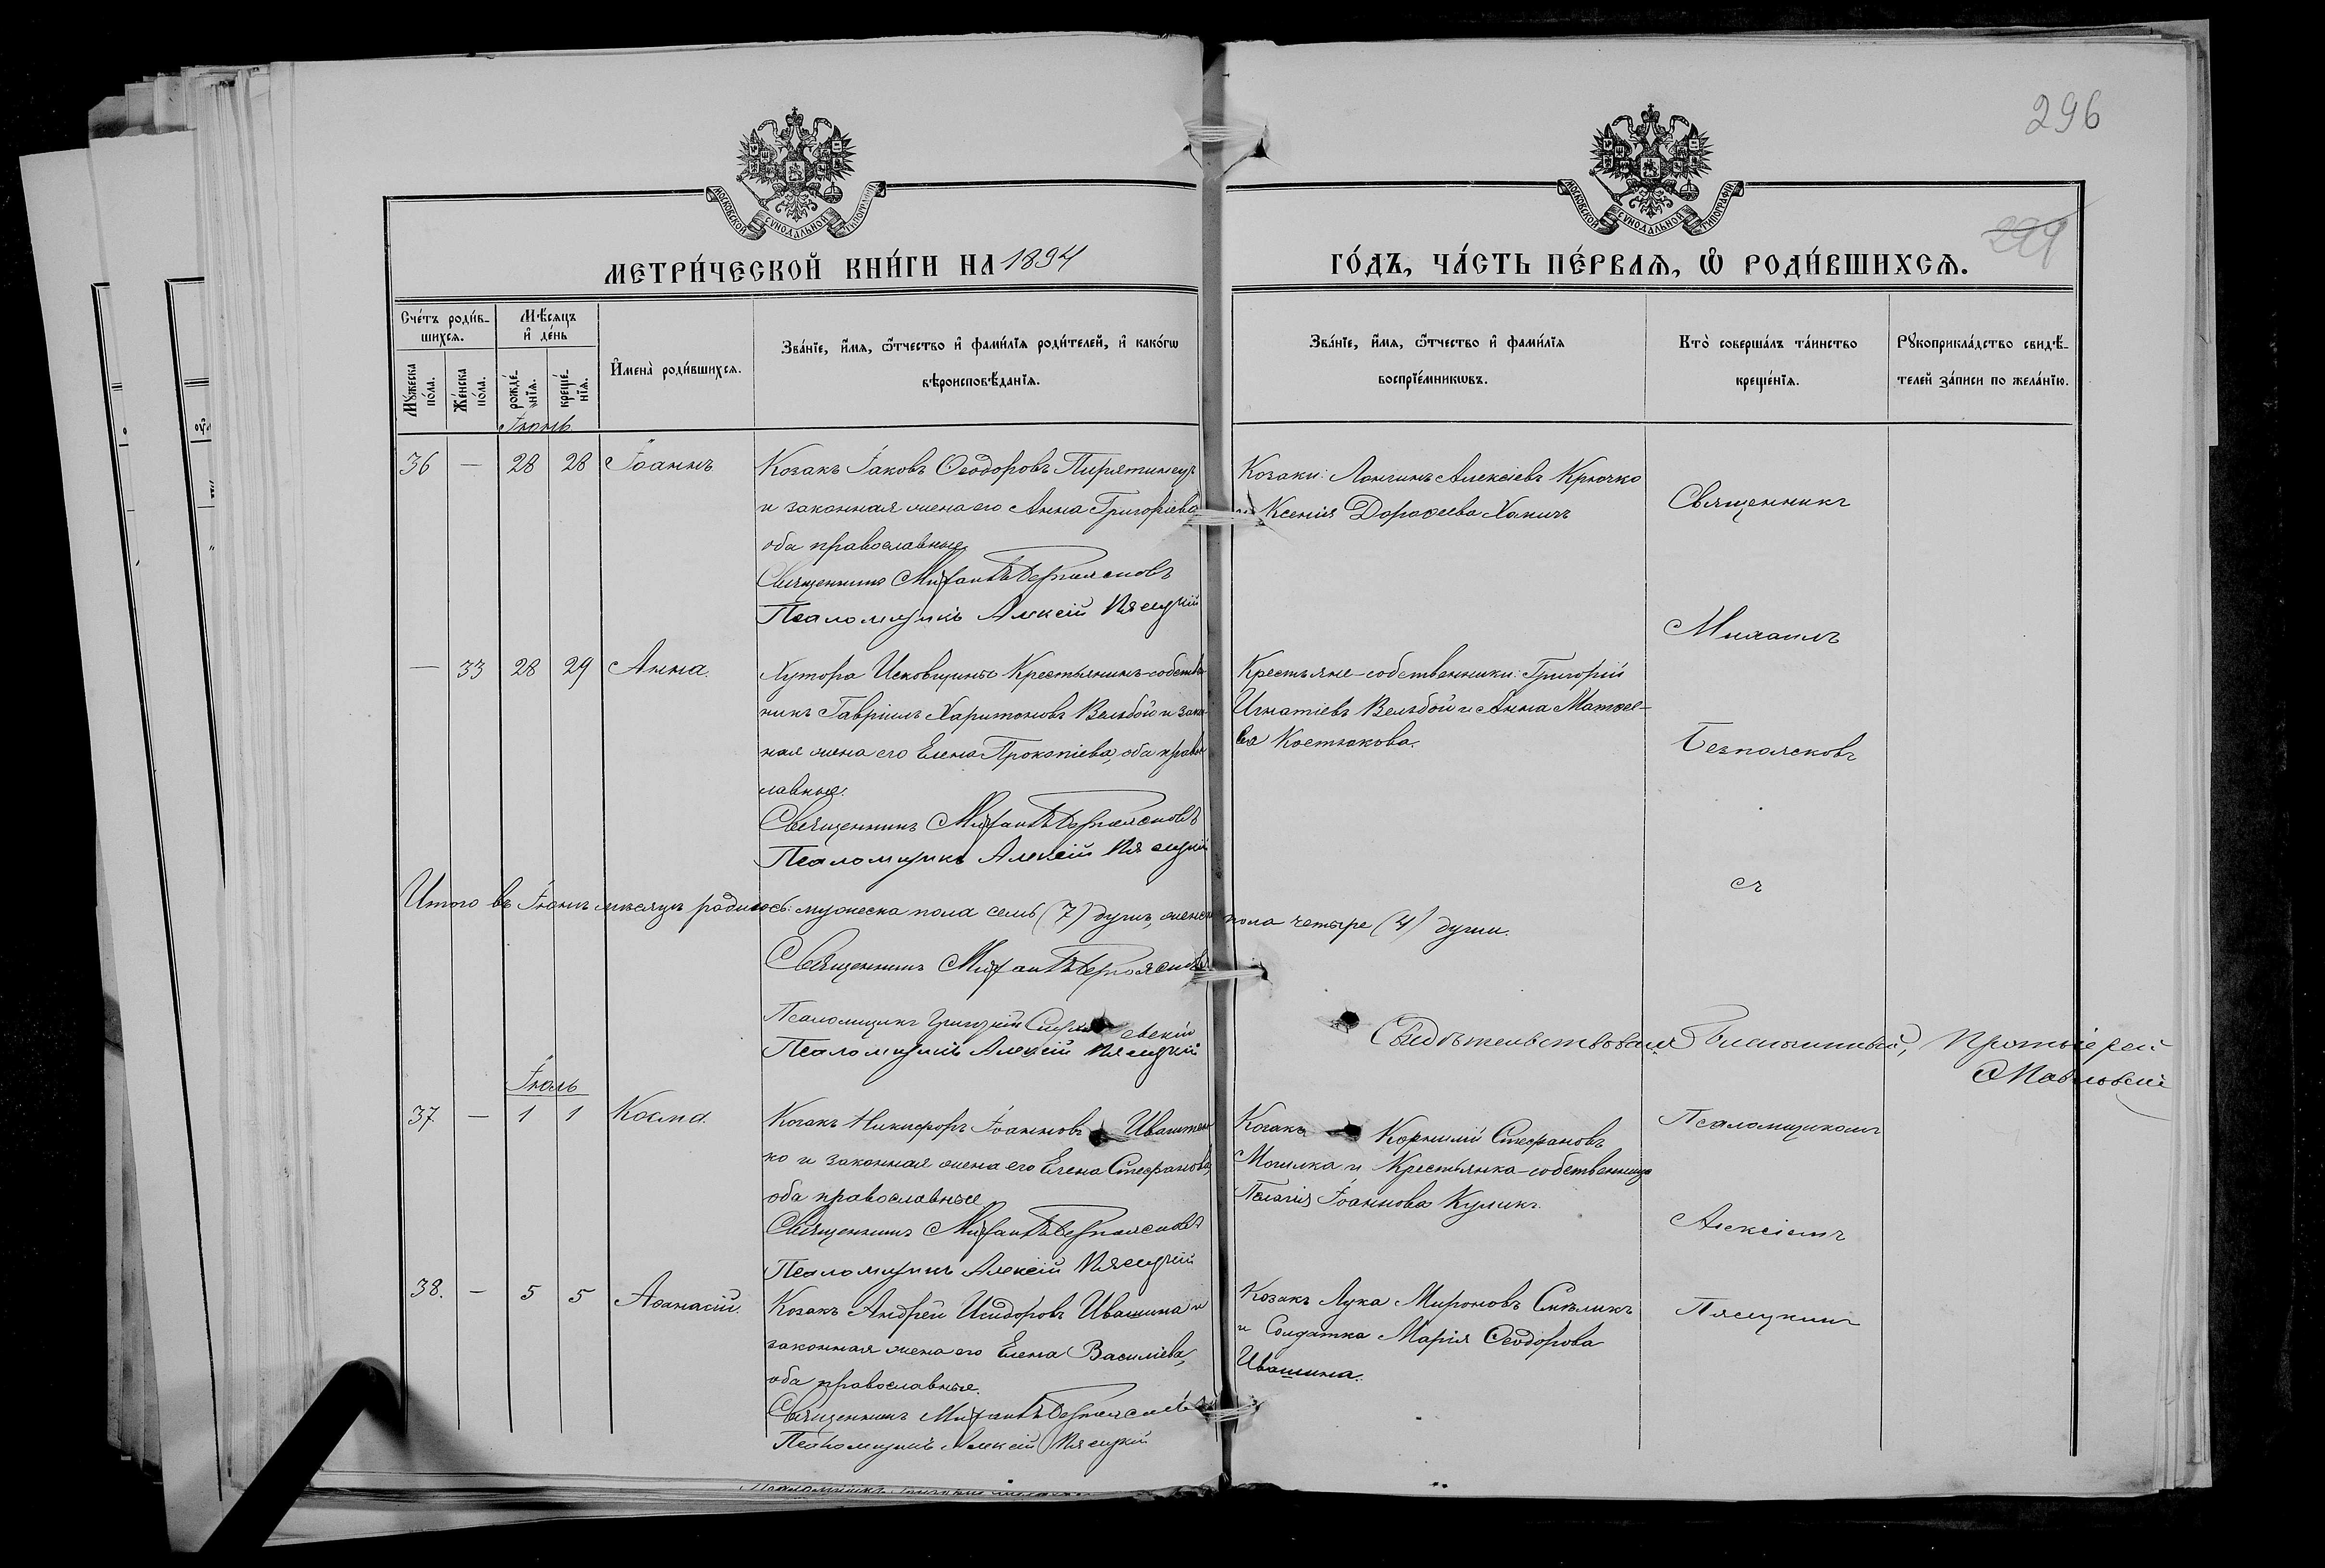 296
299
МОСКОВСКОЙ СѴНОДАЛЬНОЙ ТИПОГРАФІИ
МОСКОВСКОЙ СѴНОДАЛЬНОЙ ТИПОГРАФІИ
МЕТРИ́ЧЕСКОЙ КНИ́ГИ НА 1894
ГО́ДЪ, ЧА́СТЬ ПЕ́РВАЯ, Ѡ РОДИ́ВШИХСЯ.
Сче́тъ роди́в-
шихся.
Мꙋ́жеска по́ла.
Же́нска по́ла.
Мѣ́сяцъ
и҆ де́нь
рожде́-нїя.
креще́-нїя.
И҆мена̀ роди́вшихся.
Зва́нїе, и҆́мя, ѻ҆́тчество и҆ фами́лїя роди́телей, и҆ како́гѡ
вѣроисповѣ́данїя.
Зва́нїе, и҆́мя, ѻ҆́тчество и҆ фами́лїя
воспрїе́мникѡвъ.
Кто̀ соверша́лъ та́инство
креще́нїя.
Рꙋкоприкла́дство свидѣ́-
телей за́писи по жела́нїю.
Іюнь
36 — 28 28 Іоаннъ
Козакъ Іаковъ Ѳеодоровъ Пирятинецъ
и законная жена его Анна Григоріева
оба православные
Священникъ Михаилъ Безпоясковъ
Псаломщикъ Алексій Пясецкій
Козаки: Лонгинъ Алексіевъ Крючко
и Ксенія Дороѳеева Хомичъ
Священникъ
Михаилъ
Безпоясковъ
съ
— 33 28 29 Анна.
Хутора Исковщины Крестьянинъ-собствен
никъ Гавріилъ Харитоновъ Вельбой и закон
ная жена его Елена Прокопіева, оба право
славные.
Священникъ Михаилъ Безпоясковъ
Псаломщикъ Алексій Пясецкій
Крестьяне-собственники: Григорій
Игнатіевъ Вельбой и Анна Матѳее-
ва Костюкова.
Итого въ Іюнѣ мѣсяцѣ родилось: мужеска пола семь (7) душъ, женска пола четыре (4) души.
Священникъ Михаилъ Безпоясковъ
Псаломщикъ Григорій
Псаломщикъ Алексій Пясецкій
Свидѣтельствовалъ Благочинный, Протоіерей
Павловскій
Іюль
37. — 1 1 Косма.
Козакъ Никифоръ Іоанновъ Ивантен
ко и законная жена его Елена Стефанова,
оба православные
Священникъ Михаилъ Безпоясковъ
Псаломщикъ Алексій Пясецкій
Козакъ Корнилій Стефановъ
Могилка и Крестьянка-собственница
Пелагія Іоаннова Куликъ.
Псаломщикомъ
Алексіемъ
Пясецкимъ
38. — 5 5 Аѳанасій.
Козакъ Андрей Исидоровъ Ивашина и
законная жена его Елена Василіева,
оба православные.
Священникъ Михаилъ Безпоясковъ
Псаломщикъ Алексій Пясецкій
Козакъ Лука Мироновъ
и Солдатка Марія Ѳеодорова
Ивашина.